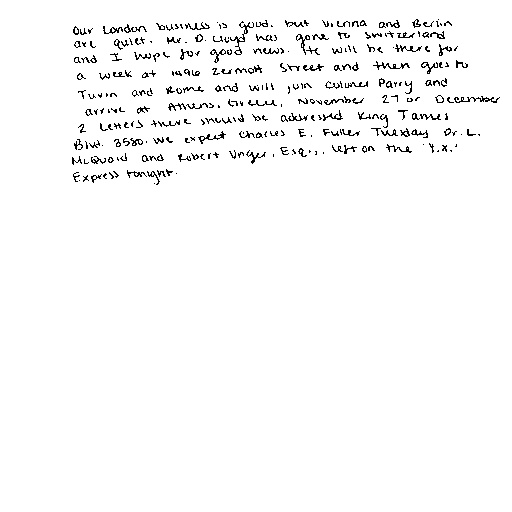 Our London business is good, but Vienna and Berlin
are quiet. Mr. D. Lloyd has gone to Switzerland
and I hope for good news. He will be there for
a week at 1496 Zermott Street and then goes to
Turin and Rome and will join Colonel Parry and
arrive at Athens, Greece, November 27 or December
2 Letters there should be addressed King James
Blvd. 3580. We expect Charles E. Fuller Tuesday Dr. L.
McQuaid and Robert Unger, Esq., left on the "Y.X."
Express tonight.